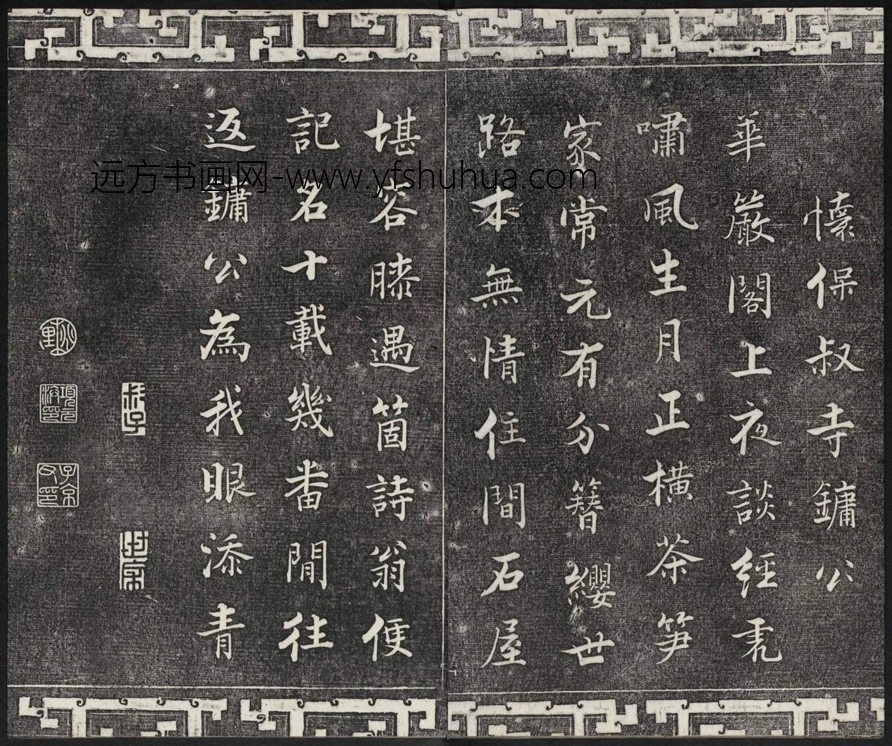 懷保叔寺鏞公
華嚴閣上夜談經禿
嘯風生月正橫茶笋
家常元有分簪纓世
路本無情住間石屋
堪容膝遇箇詩翁便
記名十載幾畨閒往
返鏞公為我眼添青
远方书画网-www.yfshuhua.com
項元汴印
子京父印